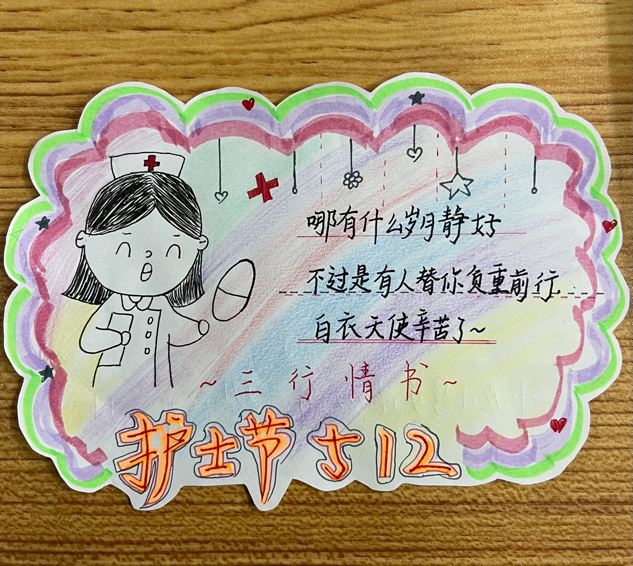 哪有什么岁月静好
不过是有人替你负重前行.
白衣天使辛苦了~
~三行情书~
护士节 5 12